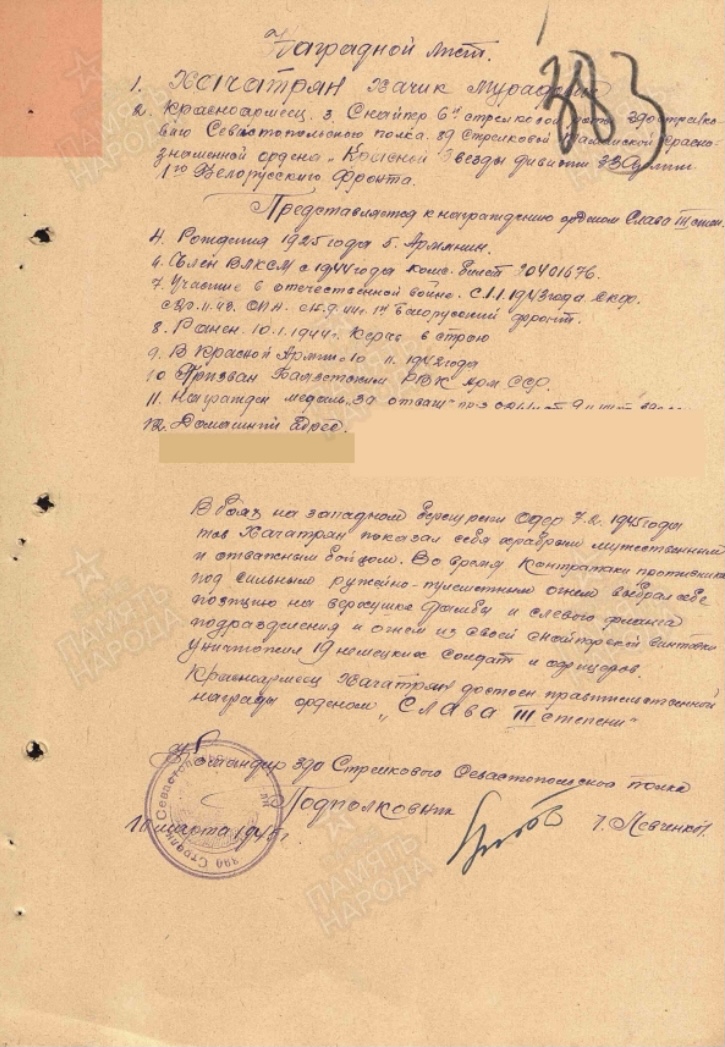 Наградной лист.
383
1. Хачатрян Хачик
2. Красноармеец. 3. Снайпер 6й стрелковой роты 390 стрелко-
вого Севастопольского полка. 89 Стрелковой Таманской Красно-
знаменной ордена „Красной Звезды дивизии 33 Армии
1го Белорусского Фронта.
Представляется к награждению орденом Слава III степ.
4. Рождения 1925 года 5. Армянин.
6. Член ВЛКСМ с 1944 года комс. билет 20401676.
7. Участие в отечественной войне. с 1.1.1943 года
Белорусский фронт.
8. Ранен. 10.1.1944г. Керчь в строю
9. В Красной Армии 10 11. 1942 года
10 Призван РВК Арм ССР.
11. Награжден медаль „За отвагу"
12. Домашний адрес.
В боях на западном берегу реки Одер 7.2. 1945 годы
тов Хачатрян показал себя храбрым мужественным
и отважным бойцом. Во время контратаки противника
под сильным ружейно-пулеметным огнем выбрал себе
позицию на верхушке дамбы и слевого фланга
подразделения и огнем из своей снайперской винтовки
уничтожил 19 немецких солдат и офицеров.
Красноармеец Хачатрян достоен правительственной
награды орденом „Слава III степени"
Командир 390 Стрелкового Севастопольского полка
Подполковник / Левченко/.
10 марта 1945г.
ПАМЯТЬ НАРОДА